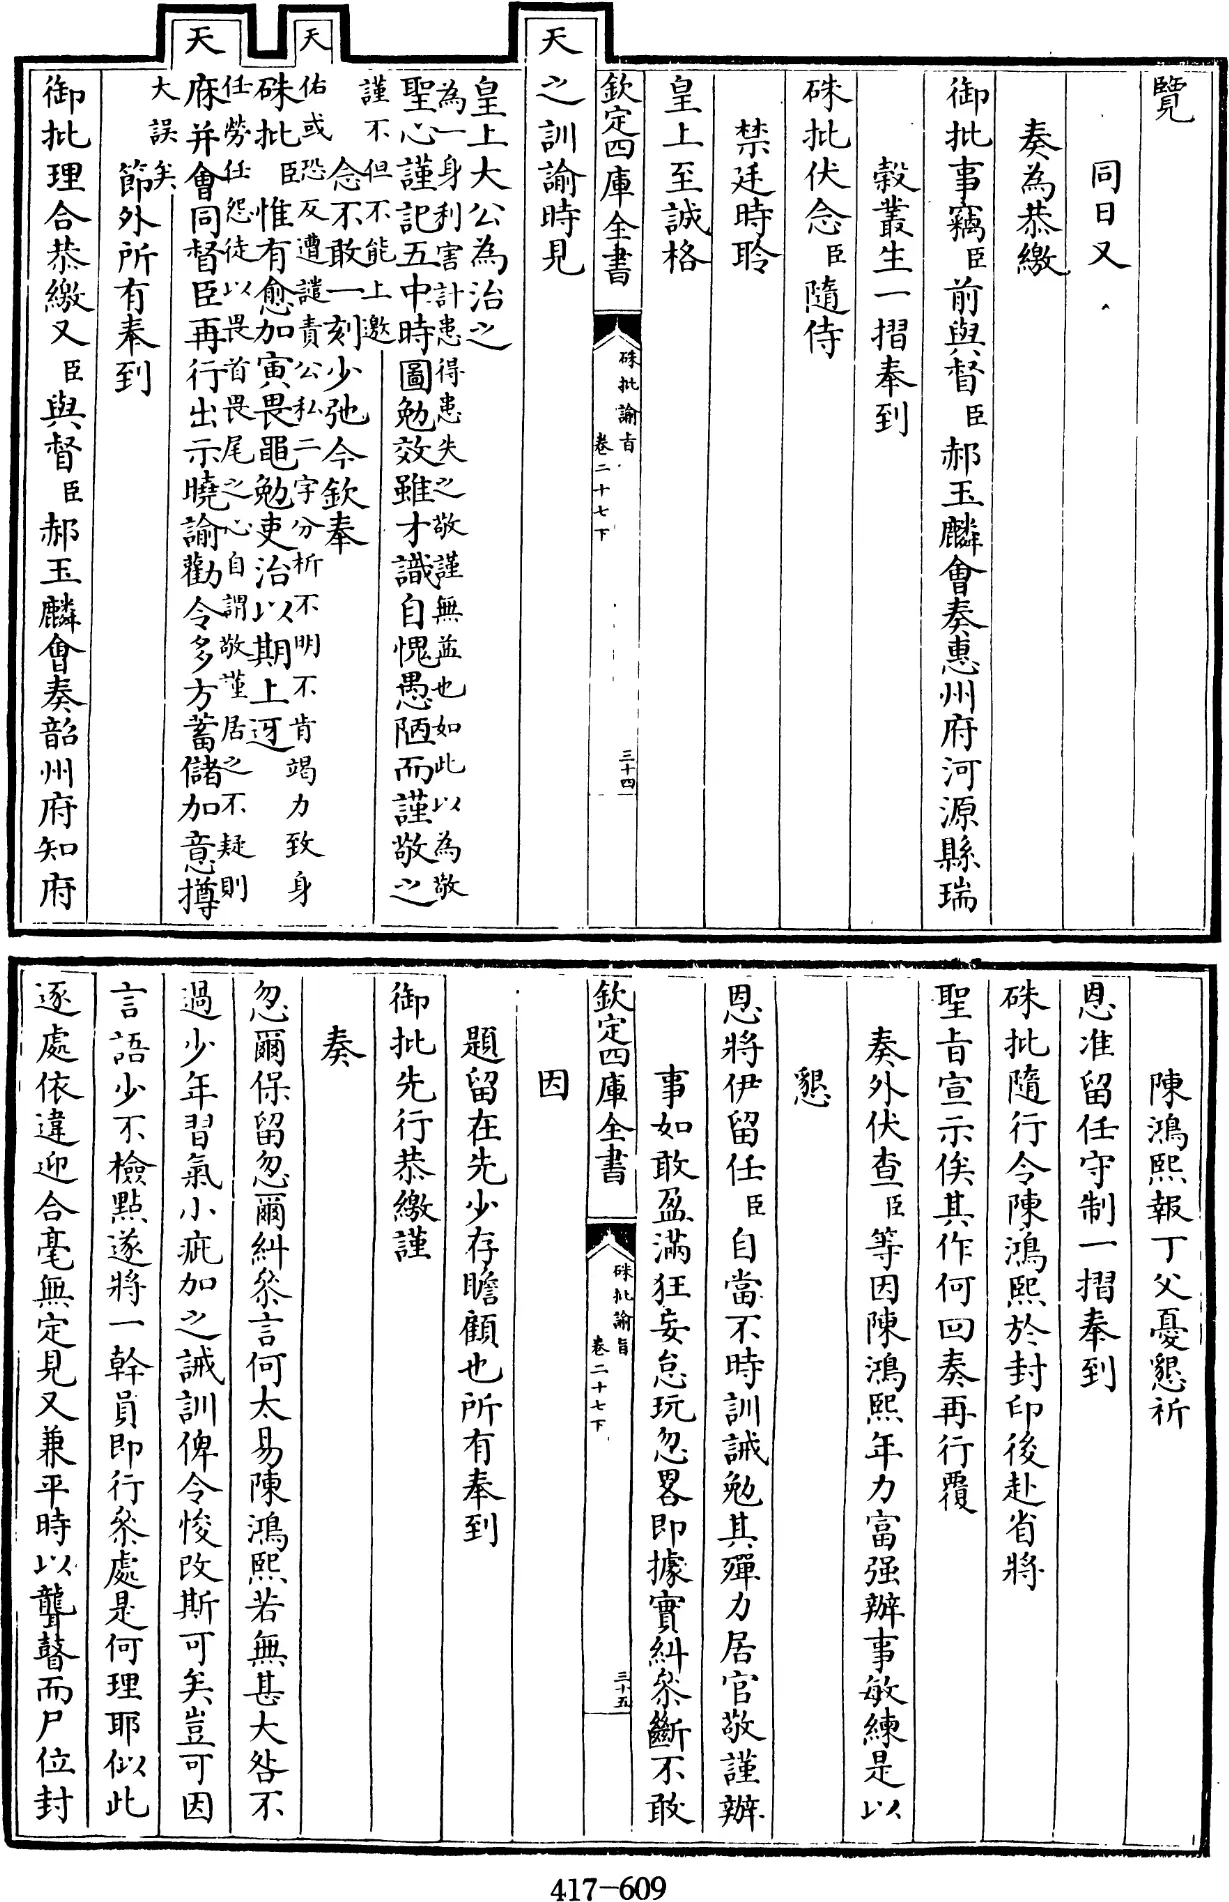 覽
同日又
奏為恭繳
御批事竊臣前與督臣郝玉麟會奏惠州府河源縣瑞
榖叢生一摺奉到
硃批伏念臣隨侍
禁廷時聆
皇上至誠格
欽定四庫全書
硃批諭旨
卷二十七下
三十四
天之訓諭時見
皇上大公為治之
為一身利害計患得患失之敬謹無益也如此以為敬
聖心謹記五中時圖勉效雖才識自愧愚陋而謹敬之
謹不但不能上邀
念不敢一刻少弛今欽奉
天佑或恐反遭譴責公私二字分析不明不肯竭力致身
硃批臣惟有愈加寅畏黽勉吏治以期上迓
任勞任怨徒以畏首畏尾之心自謂敬謹居之不疑則
天庥并會同督臣再行出示曉諭勸令多方蓄儲加意撙
大誤矣
節外所有奉到
御批理合恭繳又臣與督臣郝玉麟會奏韶州府知府
陳鴻熙報丁父憂懇祈
恩准留任守制一摺奉到
硃批隨行令陳鴻熙於封印後赴省將
聖旨宣示俟其作何回奏再行覆
奏外伏查臣等因陳鴻熙年力富强辦事敏練是以
懇
恩將伊留任臣自當不時訓誡勉其殫力居官敬謹辦
事如敢盈滿狂妄怠玩忽畧即據實糾叅斷不敢
欽定四庫全書
硃批諭旨
卷二十七下
三十五
因
題留在先少存瞻顧也所有奉到
御批先行恭繳謹
奏
忽爾保留忽爾糾叅言何太易陳鴻熙若無甚大咎不
過少年習氣小疵加之誡訓俾令悛改斯可矣豈可因
言語少不檢點遂將一幹員即行叅處是何理耶似此
逐處依違迎合毫無定見又兼平時以聾瞽而尸位封
417-609